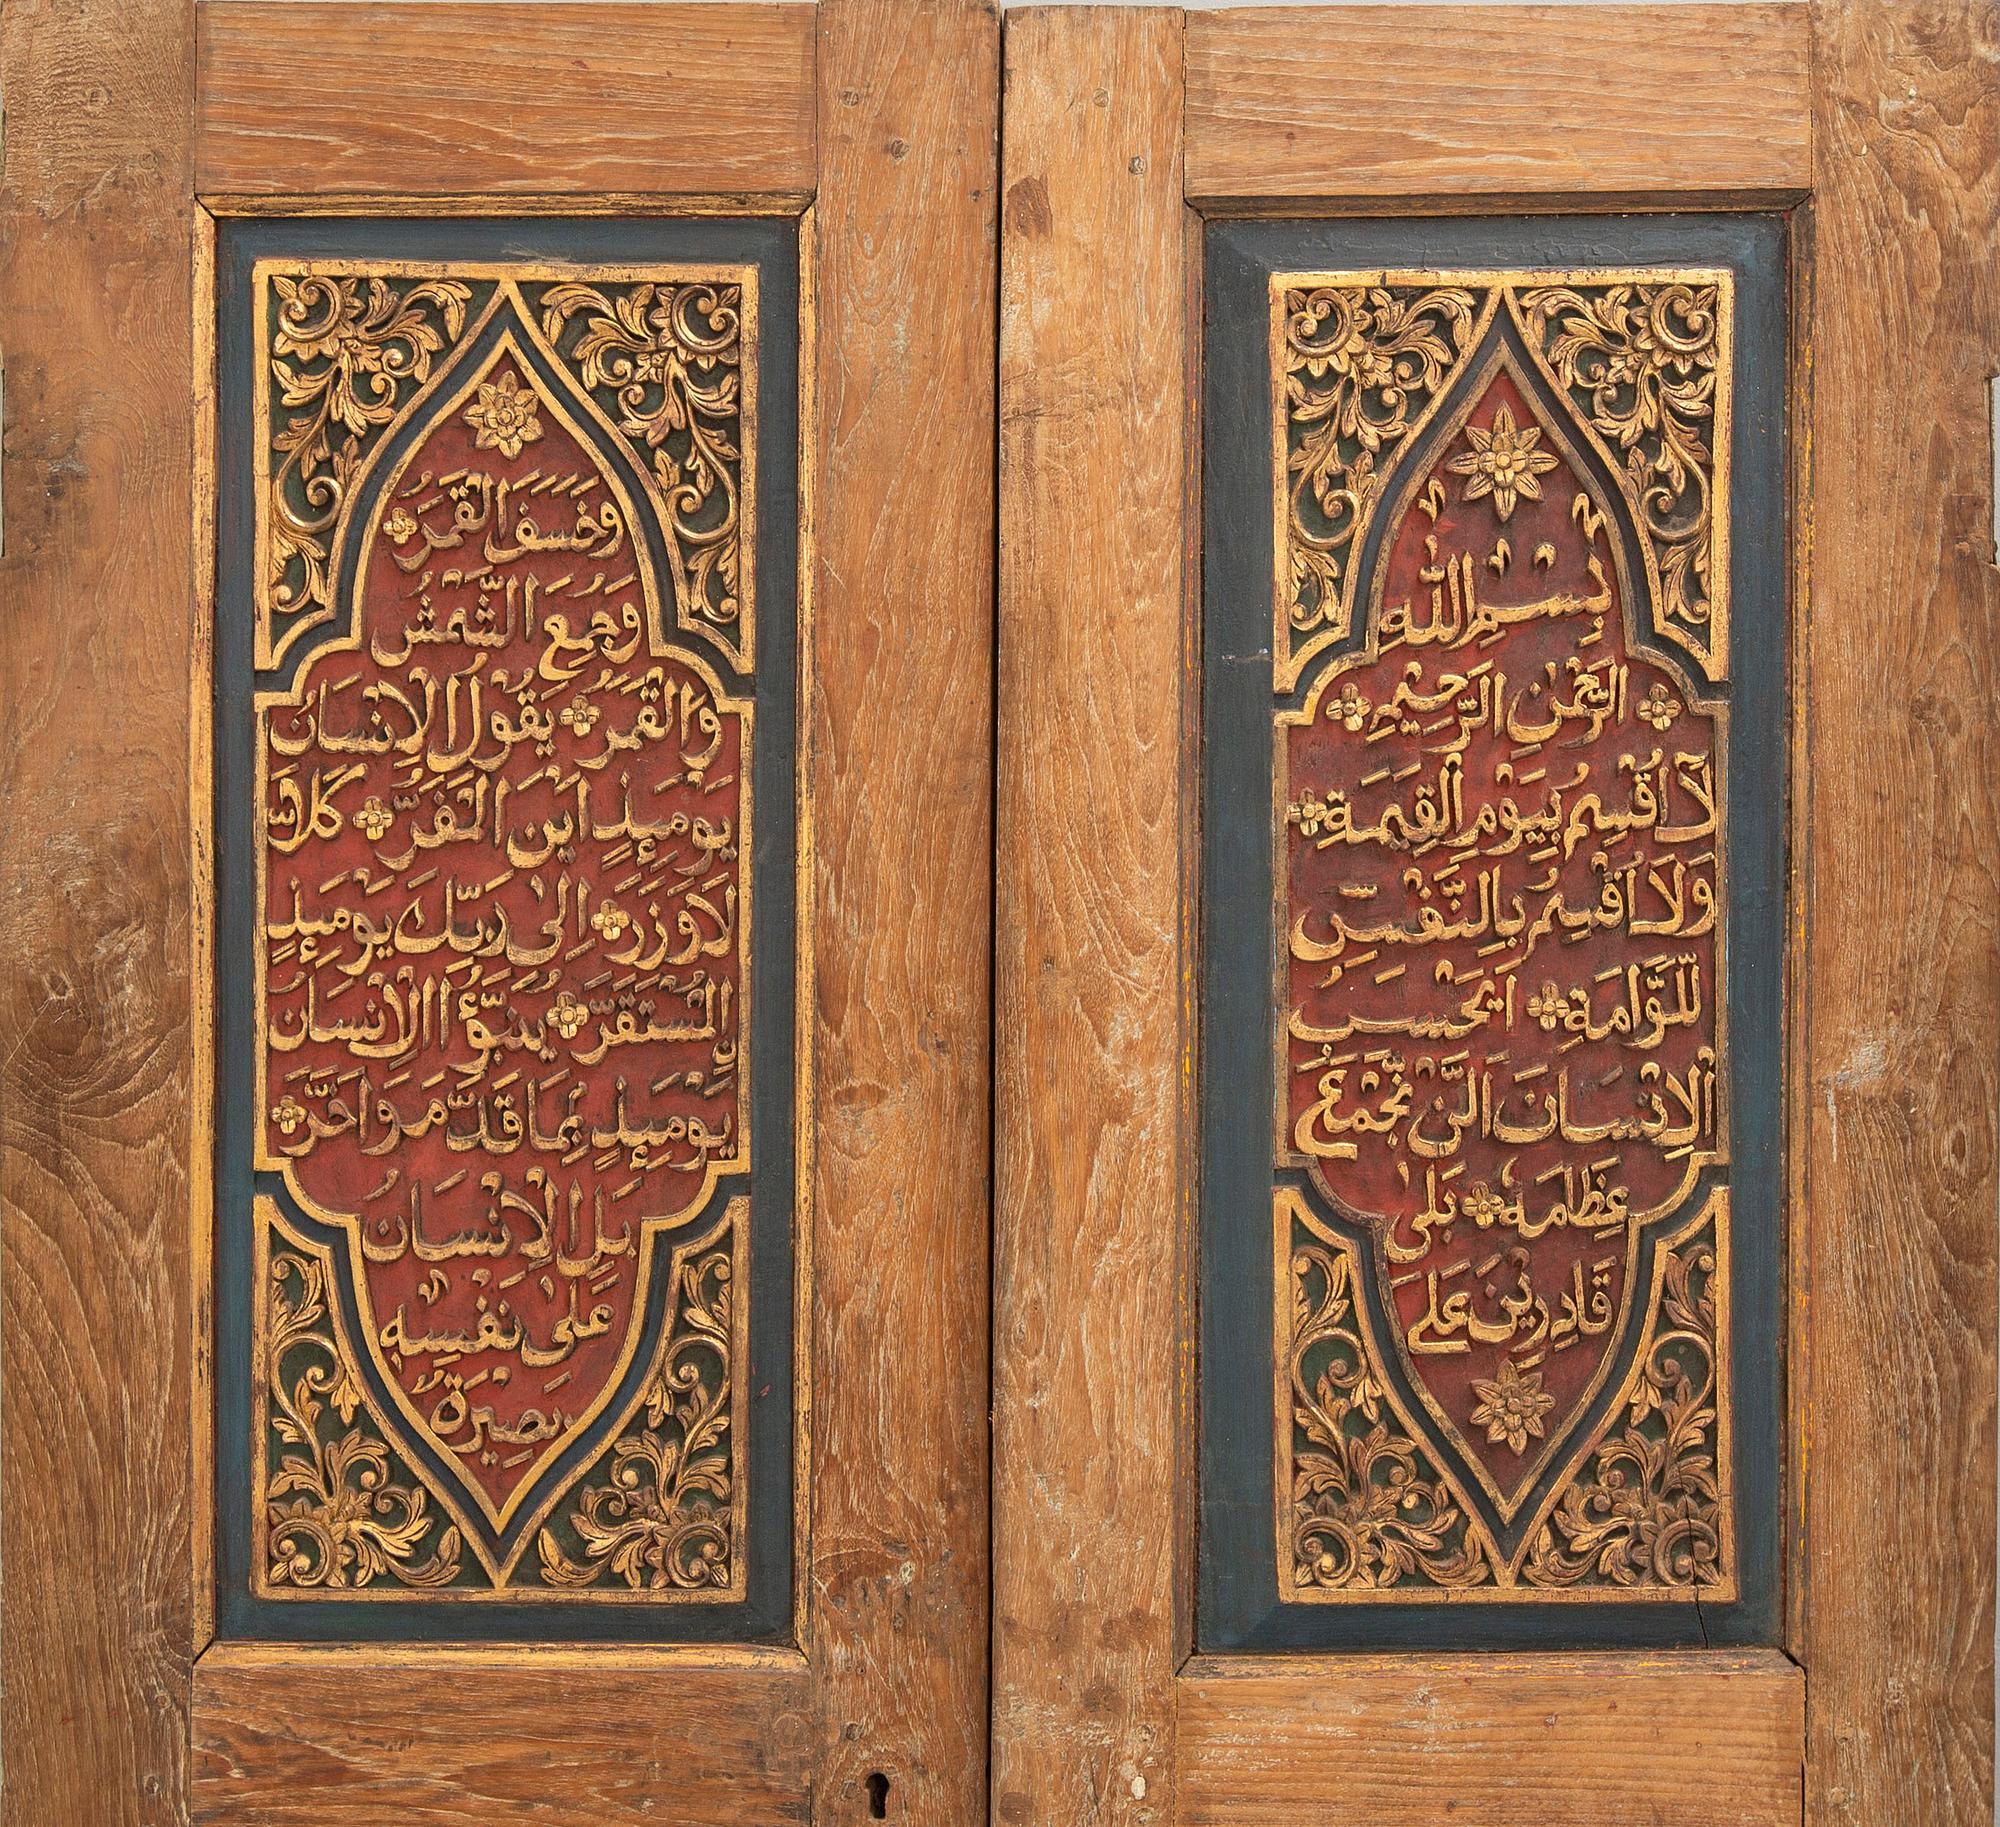 بِسْمِ اللّٰهِ
الرَّحْمٰنِ الرَّحِيْمِ
لَا اُقْسِمُ بِيَوْمِ الْقِيٰمَةِ
وَلَا اُقْسِمُ بِالنَّفْسِ
للَّوَّامَةِ اَيَحْسَبُ
الْاِنْسَانَ اَلَّنْ نَّجْمَعَ
عِظَامَهٗ بَلٰى
قَادِرِيْنَ عَلٰى
وَخَسَفَ الْقَمَرُ
وَجُمِعَ الشَّمْسُ
وَالْقَمَرُ يَقُوْلُ الْاِنْسَانُ
يَوْمَئِذٍ اَيْنَ الْمَفَرُّ كَلَّا
لَا وَزَرَ اِلٰى رَبِّكَ يَوْمَئِذٍ
الْمُسْتَقَرُّ يُنَبَّؤُا الْاِنْسَانُ
يَوْمَئِذٍ بِمَا قَدَّمَ وَاَخَّرَ
بَلِ الْاِنْسَانُ
عَلٰى نَفْسِهٖ
بَصِيْرَةٌ